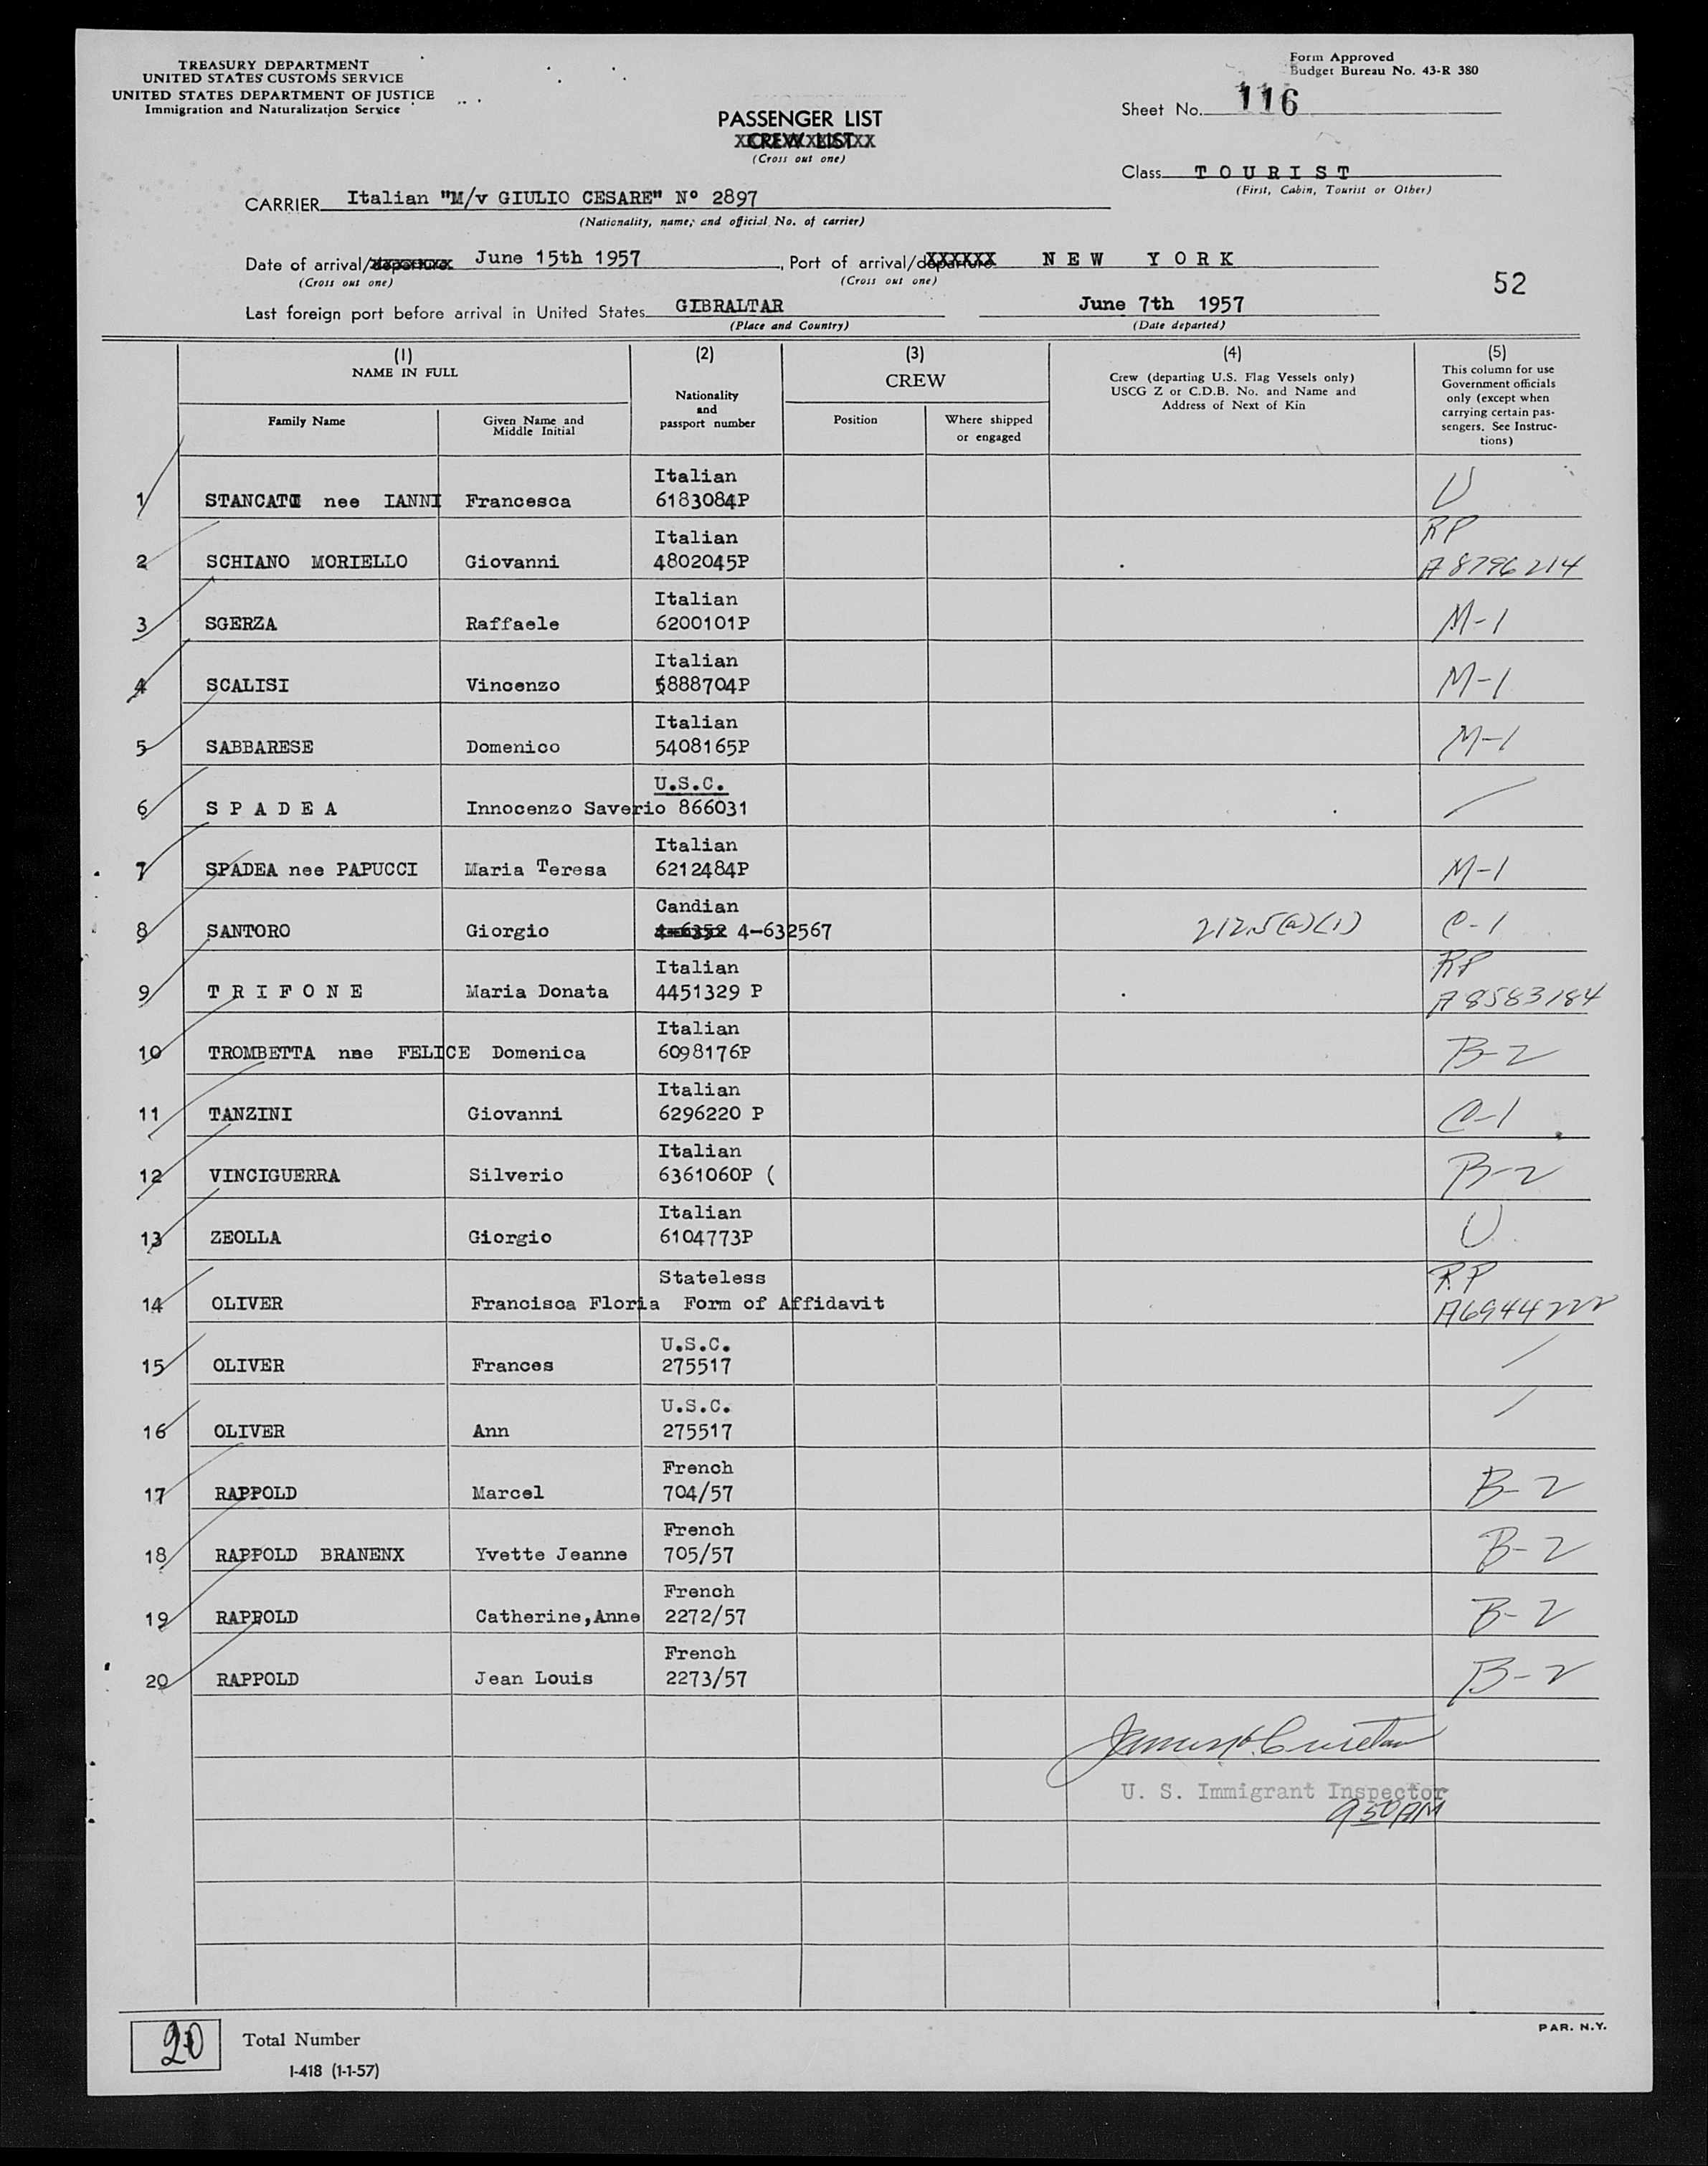 TREASURY DEPARTMENT
UNITED STATES CUSTOMS SERVICE
UNITED STATES DEPARTMENT OF JUSTICE
Immigration and Naturalization Service
Form Approved
Budget Bureau No. 43-R 380
Sheet No. 116
PASSENGER LIST
CREW LIST
(Cross out one)
Class TOURIST
(First, Cabin, Tourist or Other)
CARRIER Italian "M/v GIULIO CESARE" Nº 2897
(Nationality, name, and official No. of carrier)
Date of arrival/departure June 15th 1957, Port of arrival/departure NEW YORK
(Cross out one) (Cross out one)
52
Last foreign port before arrival in United States GIBRALTAR June 7th 1957
(Place and Country) (Date departed)
(1) NAME IN FULL
Family Name
Given Name and Middle Initial
(2)
Nationality and passport number
(3)
CREW
Position
Where shipped or engaged
(4)
Crew (departing U.S. Flag Vessels only)
USCG Z or C.D.B. No. and Name and
Address of Next of Kin
(5)
This column for use
Government officials
only (except when
carrying certain pas-
sengers. See Instruc-
tions)
1 STANCATI nee IANNI Francesca Italian 6183084P U
2 SCHIANO MORIELLO Giovanni Italian 4802045P RP A8796214
3 SGERZA Raffaele Italian 6200101P M-1
4 SCALISI Vincenzo Italian 5888704P M-1
5 SABBARESE Domenico Italian 5408165P M-1
6 SPADEA Innocenzo Saverio U.S.C. 866031
7 SPADEA nee PAPUCCI Maria Teresa Italian 6212484P M-1
8 SANTORO Giorgio Candian 4-6352 4-632567 212.5(a)(1) C-1
9 TRIFONE Maria Donata Italian 4451329 P RP A8583184
10 TROMBETTA nee FELICE Domenica Italian 6098176P B-2
11 TANZINI Giovanni Italian 6296220 P C-1
12 VINCIGUERRA Silverio Italian 6361060P ( B-2
13 ZEOLLA Giorgio Italian 6104773P U
14 OLIVER Francisca Floria Stateless Form of Affidavit RP A6944222
15 OLIVER Frances U.S.C. 275517
16 OLIVER Ann U.S.C. 275517
17 RAPPOLD Marcel French 704/57 B-2
18 RAPPOLD BRANENX Yvette Jeanne French 705/57 B-2
19 RAPPOLD Catherine,Anne French 2272/57 B-2
20 RAPPOLD Jean Louis French 2273/57 B-2
U. S. Immigrant Inspector
9 50 AM
20 Total Number
I-418 (1-1-57)
PAR. N.Y.